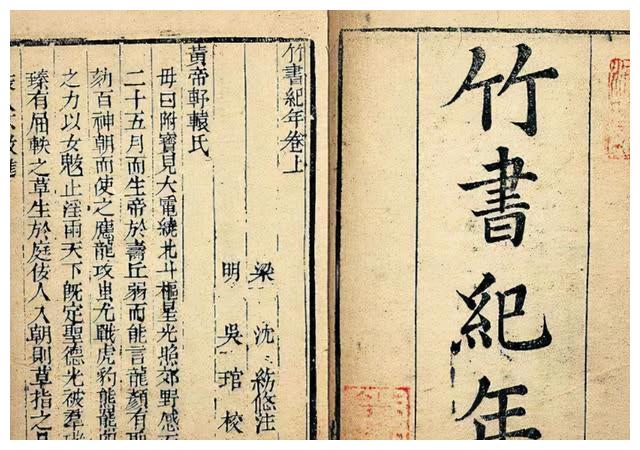 竹書紀年
竹書紀年卷上
梁 沈 約 注
明 吳 琯 校
黃帝軒轅氏
母曰附寶見大電繞北斗樞星光照郊野感
二十五月而生帝於壽丘弱而能言龍顏有
劾百神朝而使之應龍攻蚩尤戰虎豹熊羆四
之力以女魃止淫雨天下旣定聖德光被羣
臻有屈軼之草生於庭佞人入朝則草指之